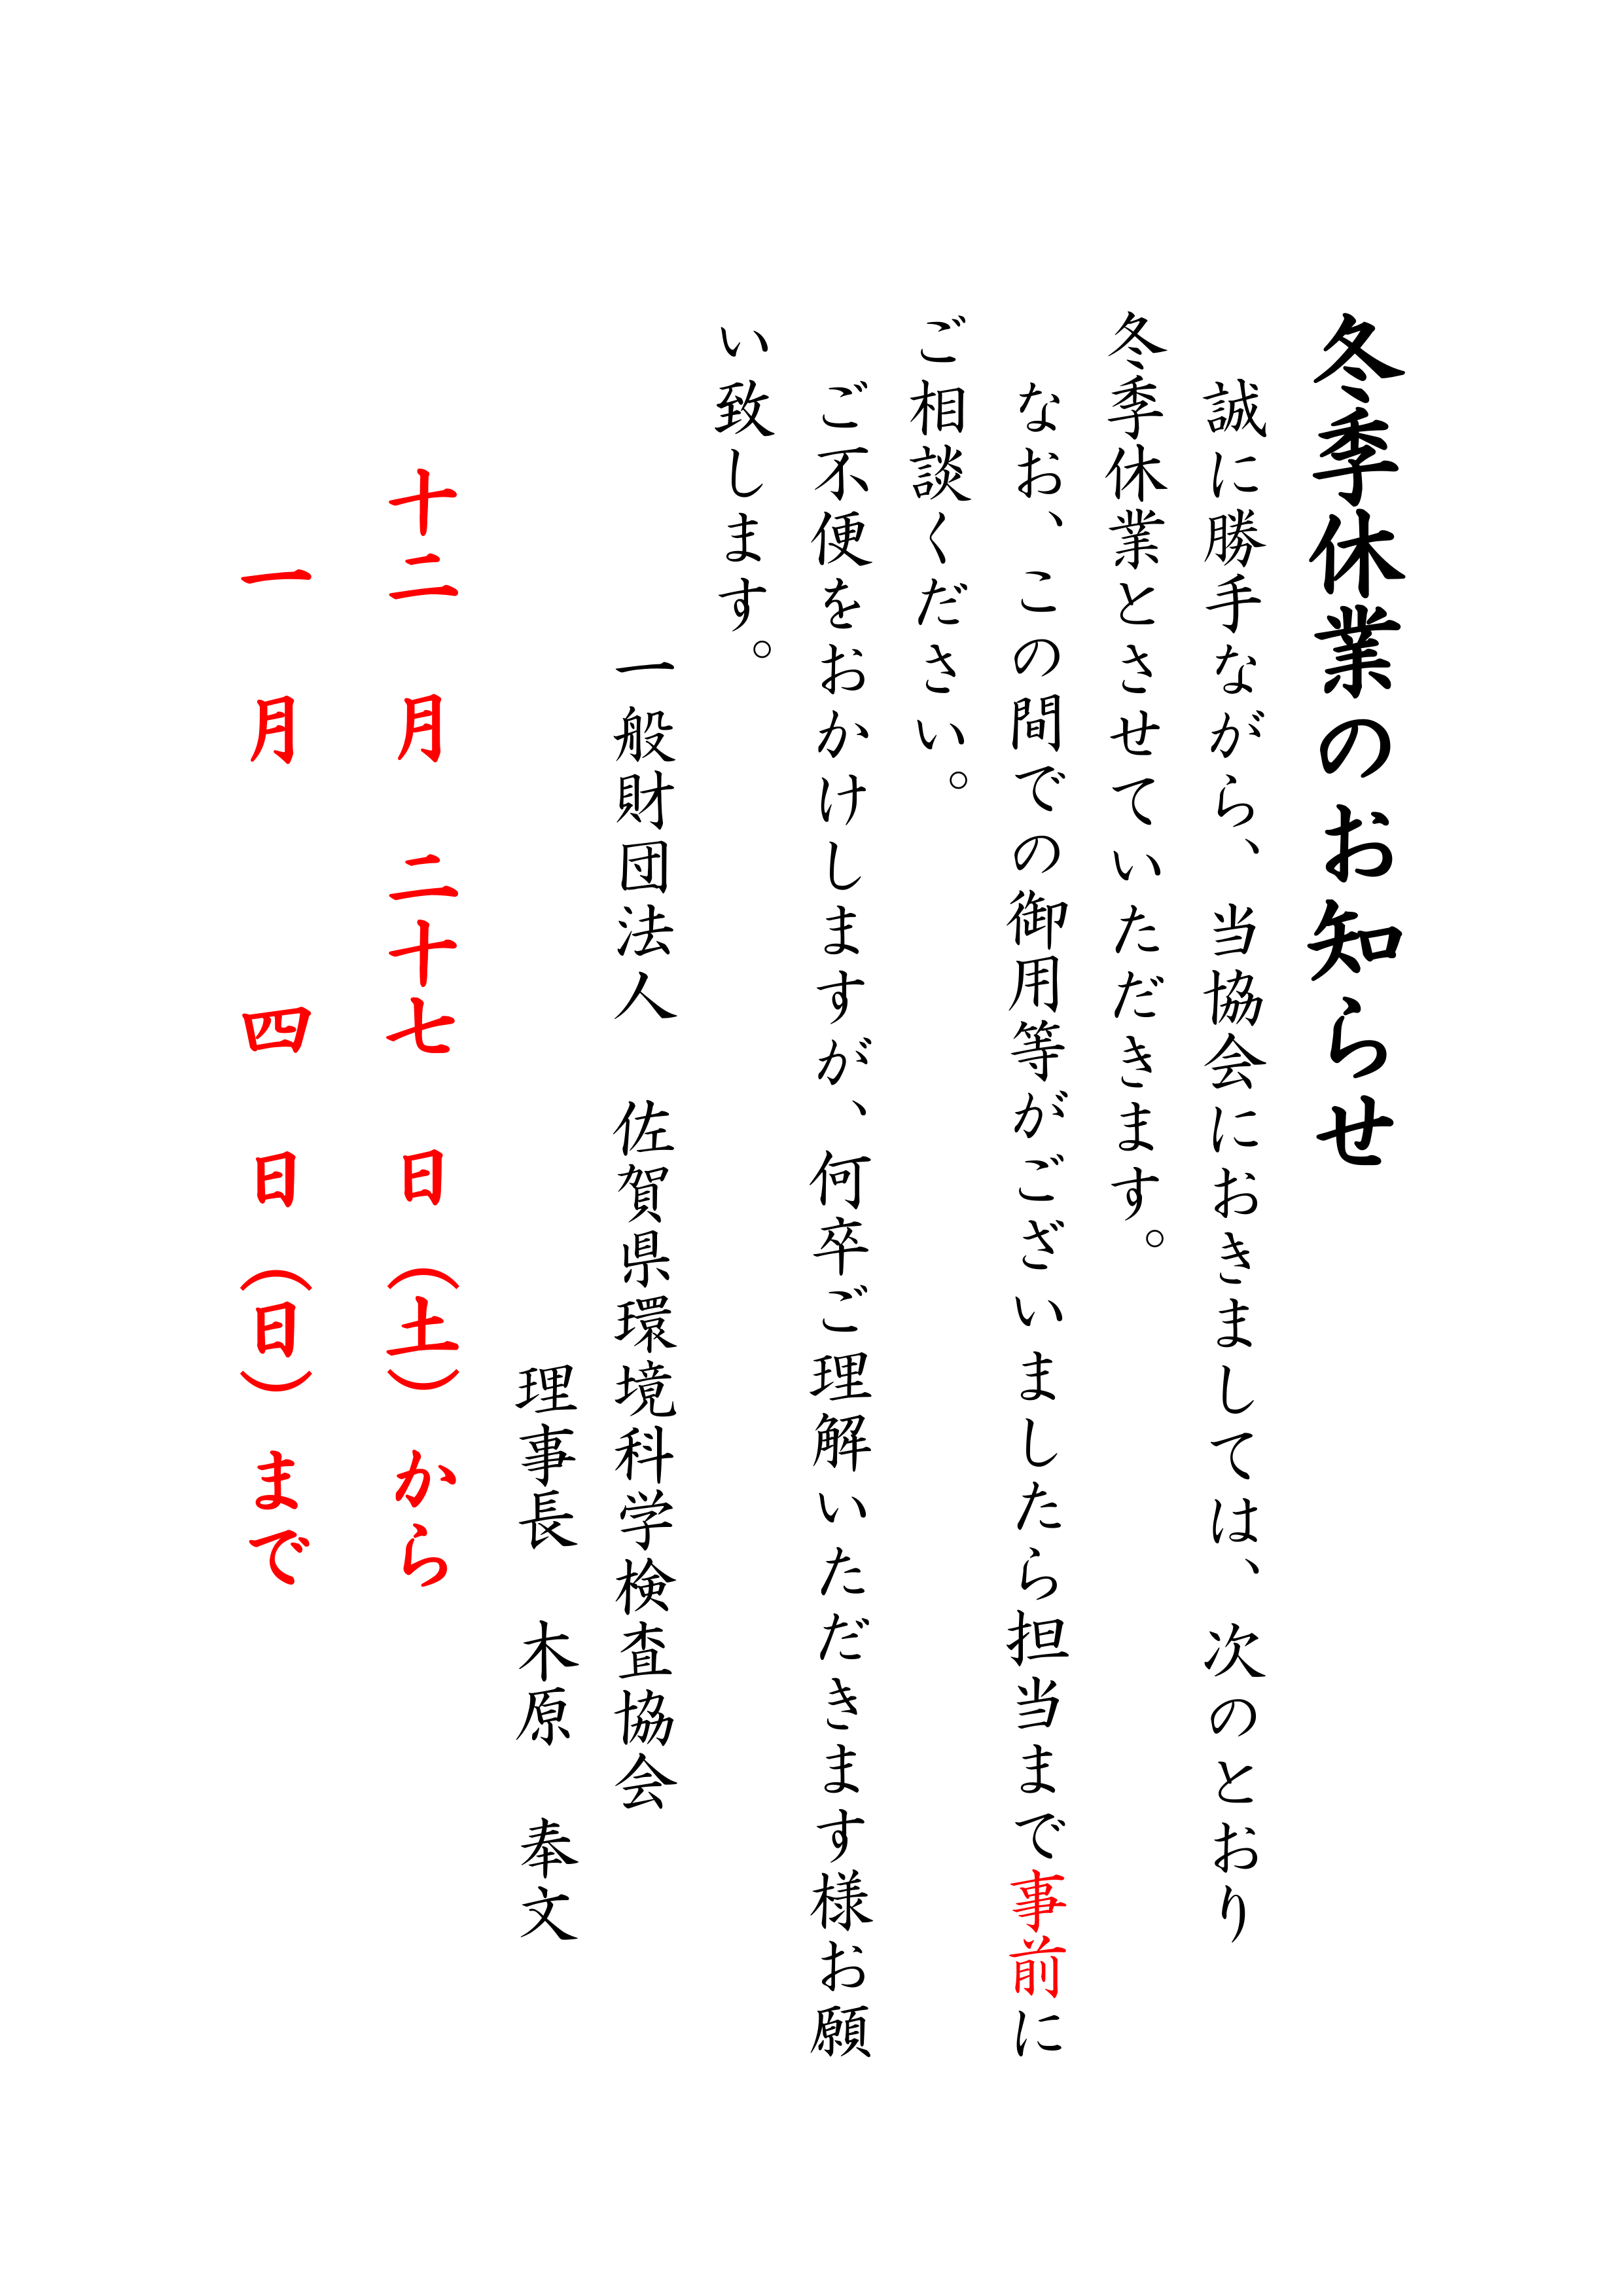 冬季休業のお知らせ
誠に勝手ながら、当協会におきましては、次のとおり
冬季休業とさせていただきます。
なお、この間での御用等がございましたら担当まで事前に
ご相談ください。
ご不便をおかけしますが、何卒ご理解いただきます様お願
い致します。
一般財団法人　佐賀県環境科学検査協会
理事長　木原　奉文
十二　月　二十七　日（土）から
一　月　四　日（日）まで